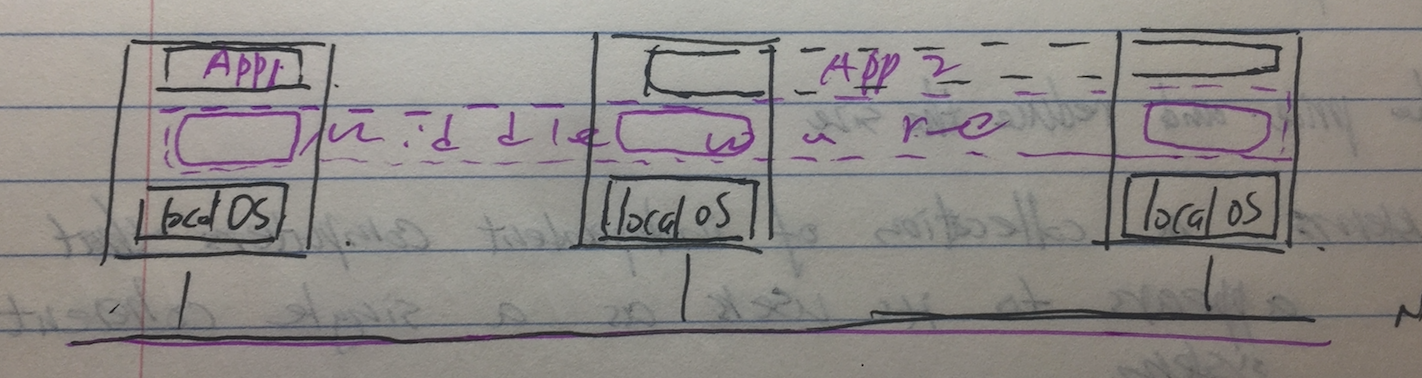 App1 App 2
Middleware
local OS local OS local OS